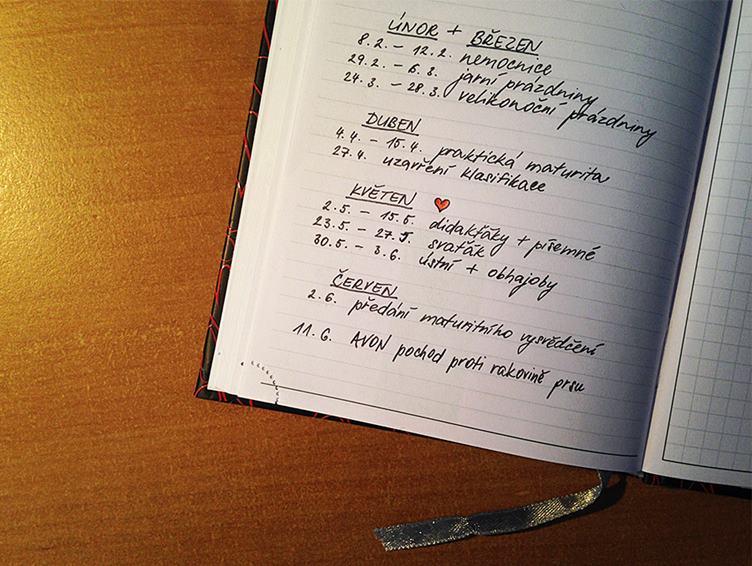 ÚNOR + BŘEZEN
8.2. – 12.2. nemocnice
29.2. – 6.3. jarní prázdniny
24.3. – 28.3. velikonoční prázdniny
DUBEN
4.4. – 15.4. praktická maturita
27.4. uzavření klasifikace
KVĚTEN
2.5. – 15.5. didakťáky + písemné
23.5. – 27.5. svaťák
30.5. – 3.6. ústní + obhajoby
ČERVEN
2.6. předání maturitního vysvědčení
11.6. AVON pochod proti rakovině prsu